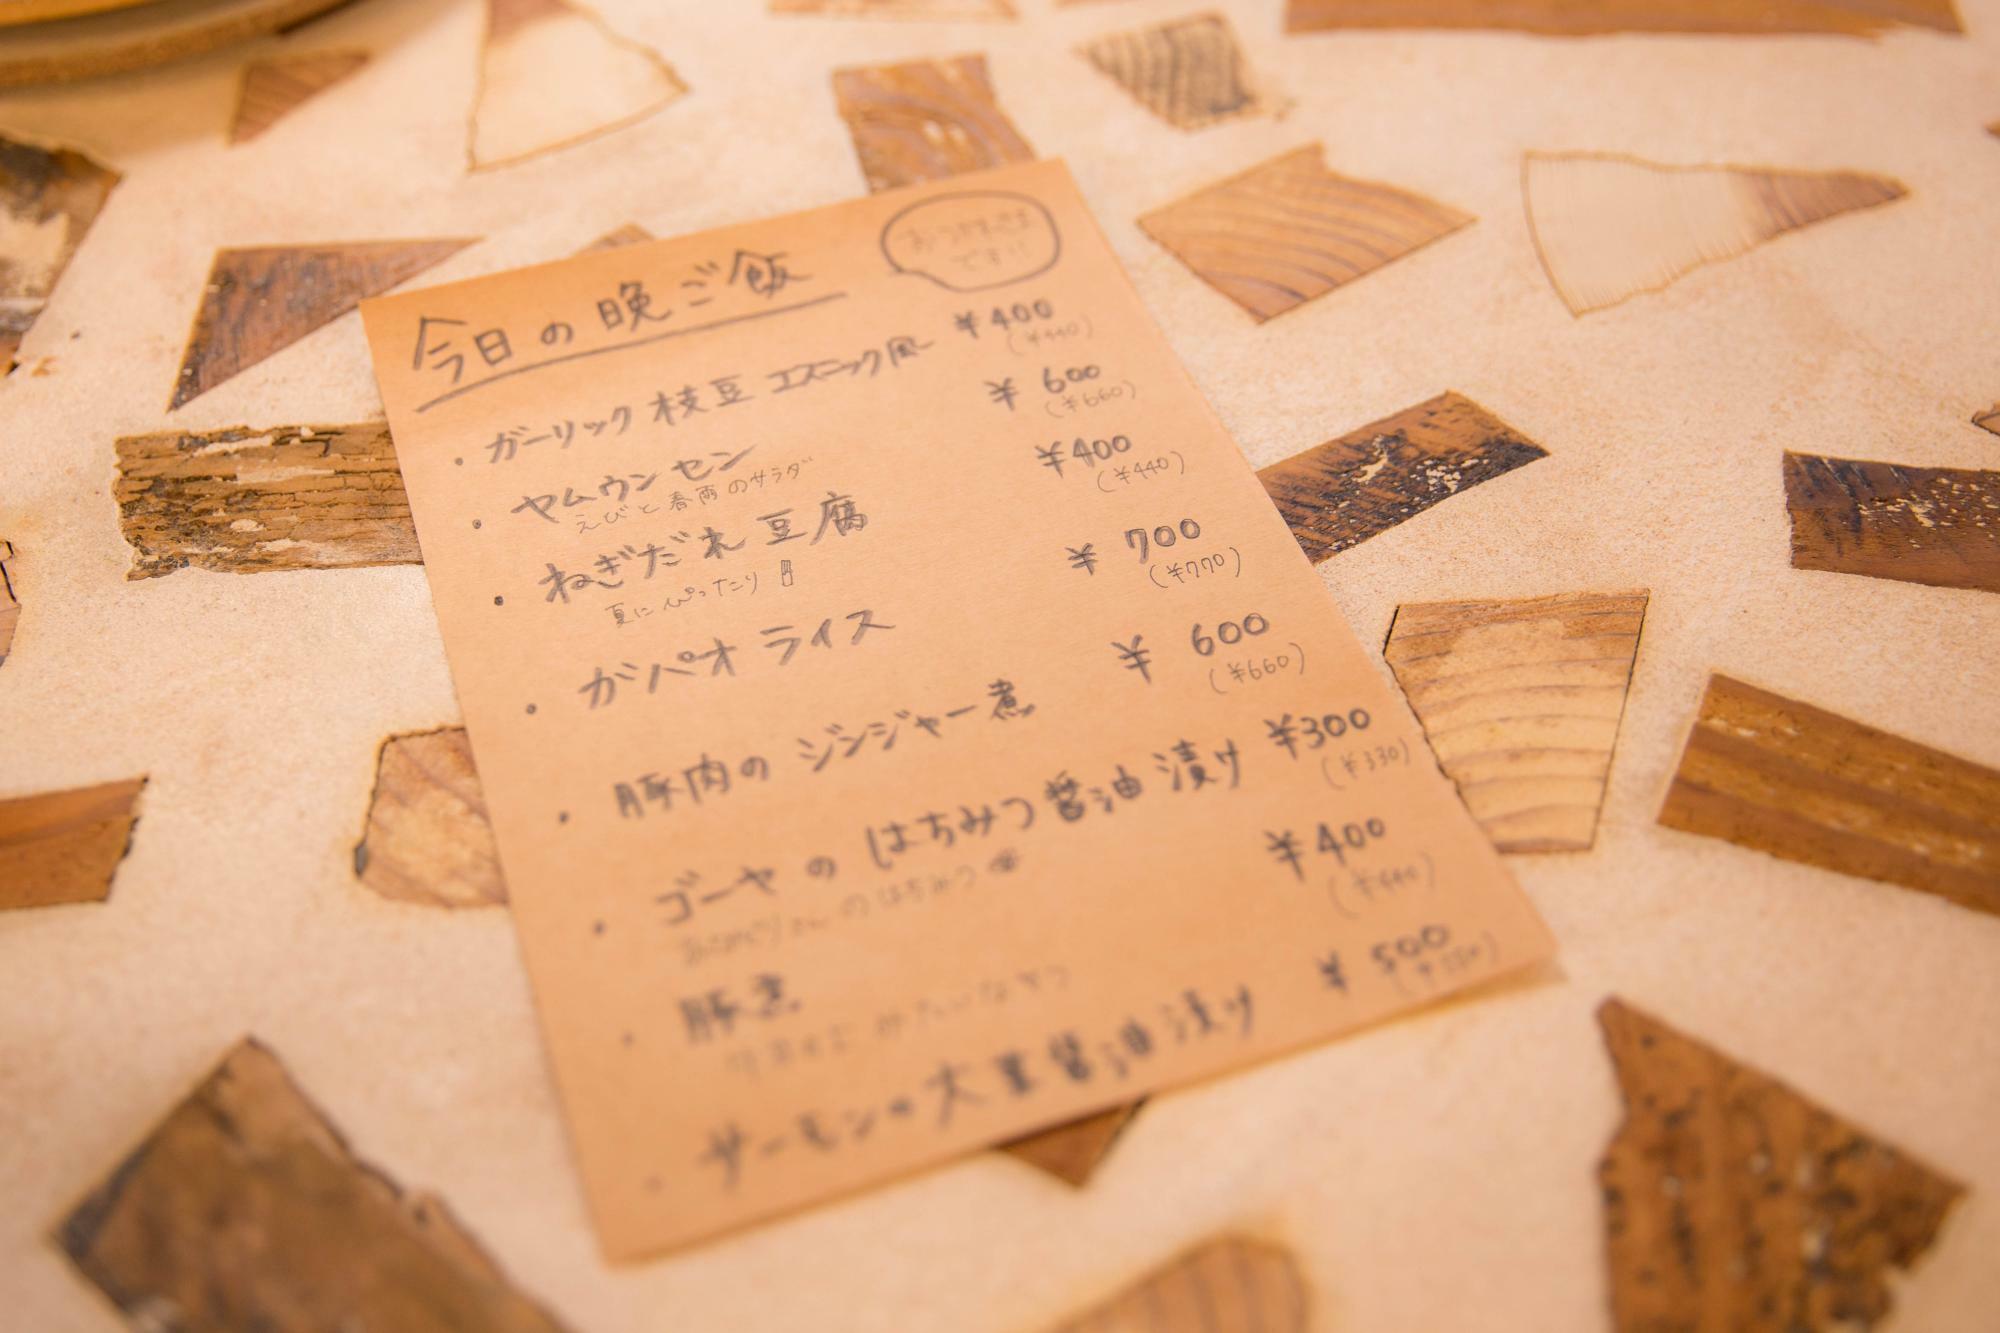 今日の晩ご飯
おつかれさま
です!!
・ガーリック枝豆 エスニック風 ¥400
(¥440)
・ヤムウンセン ¥600
えびと春雨のサラダ (¥660)
・ねぎだれ豆腐 ¥400
夏にぴったり (¥440)
・ガパオライス ¥700
(¥770)
・豚肉のジンジャー煮 ¥600
(¥660)
・ゴーヤのはちみつ醤油漬け ¥300
のはちみつ (¥330)
・豚煮 ¥400
(¥440)
・サーモンの大葉醤油漬け ¥500
(¥550)